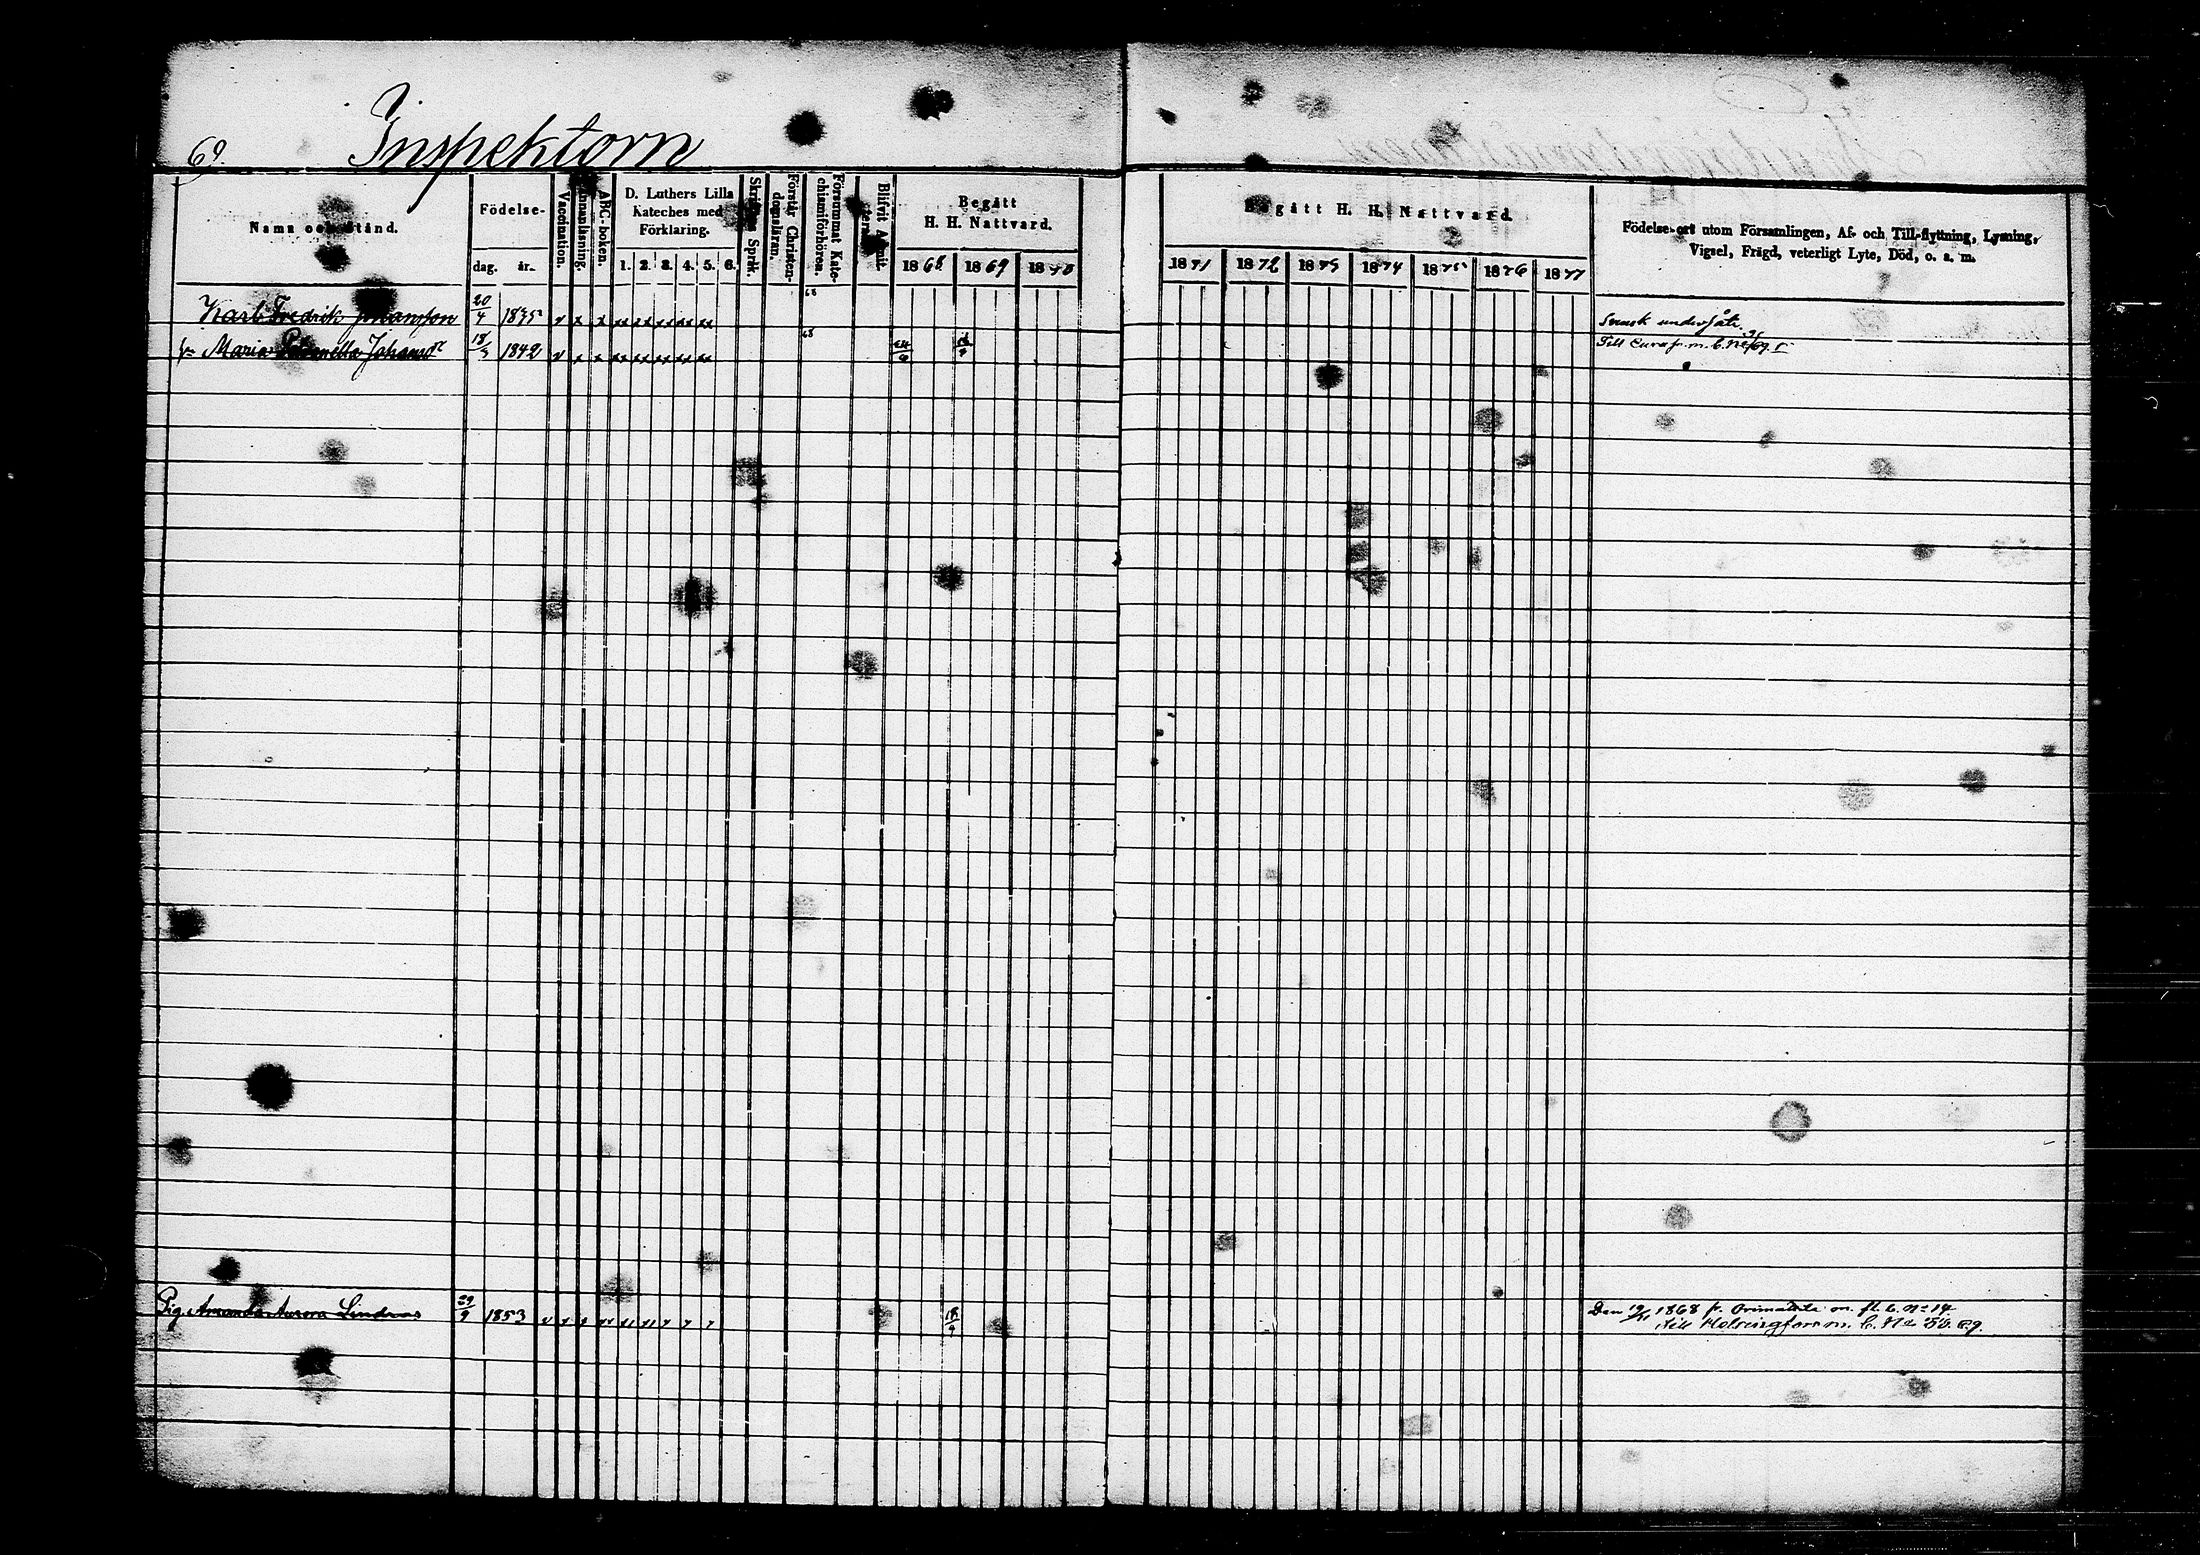 69.
Inspektorn
Namn och Stånd.
Födelse-
dag. år.
Vaccination.
Innanläsning.
ABC-boken.
D. Luthers Lilla
Kateches med
Förklaring.
1. 2. 3. 4. 5. 6.
Skriftens Språk.
Förstår Christen-
domsläran.
Försummat Kate-
chismiförhören.
Blifvit Admit-
terad.
Begått
H. H. Nattvard.
1868 1869 1870
Begått H. H. Nattvard.
1871 1872 1873 1874 1875 1876 1877
Födelse-ort utom Församlingen, Af- och Till-flyttning, Lysning,
Vigsel, Frägd, veterligt Lyte, Död, o. s. m.
Karl Fredrik Johansson 20/4 1835 68 Svensk undersåte.
Maria Petronella Johansson 18/3 1842 68 Till Eura m. b. No
Pig. Amanda Aurora Lindroos 29/9 1853 18/4 Den 19/11 1868 fr. m. fl. b. No 14.
till Helsingfors m. b. No 50. 69.